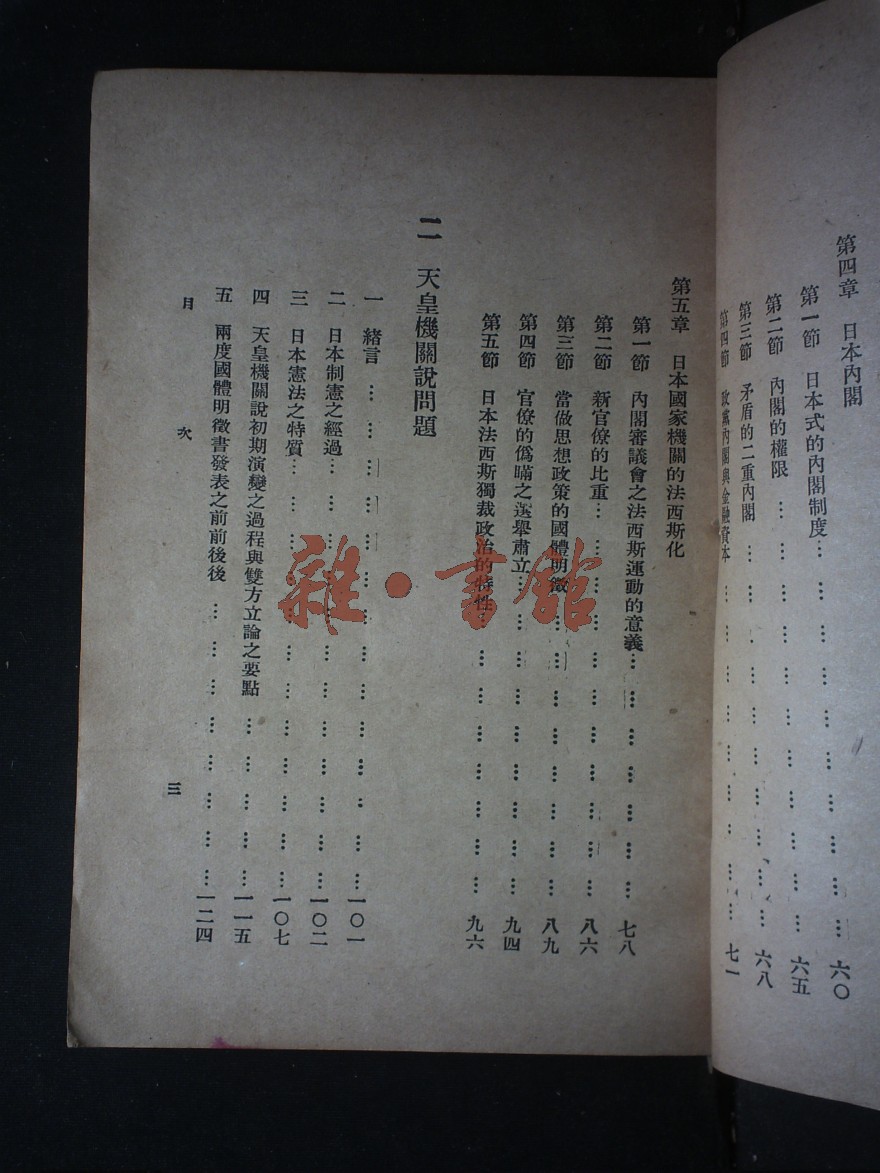 第四章　日本內閣
第一節　日本式的內閣制度………………………六〇
第二節　內閣的權限………………………六五
第三節　矛盾的二重內閣………………………六八
第四節　政黨內閣與金融資本………………………七一
第五章　日本國家機關的法西斯化
第一節　內閣審議會之法西斯運動的意義………………………七八
第二節　新官僚的比重………………………八六
第三節　當做思想政策的國體明徵………………………八九
第四節　官僚的僞瞞之選舉肅立………………………九四
第五節　日本法西斯獨裁政治的特性………………………九六
二　天皇機關說問題
一　緒言………………………一〇一
二　日本制憲之經過………………………一〇二
三　日本憲法之特質………………………一〇七
四　天皇機關說初期演變之過程與雙方立論之要點………………………一一五
五　兩度國體明徵書發表之前前後後………………………一二四
目　次
三
雜·書館